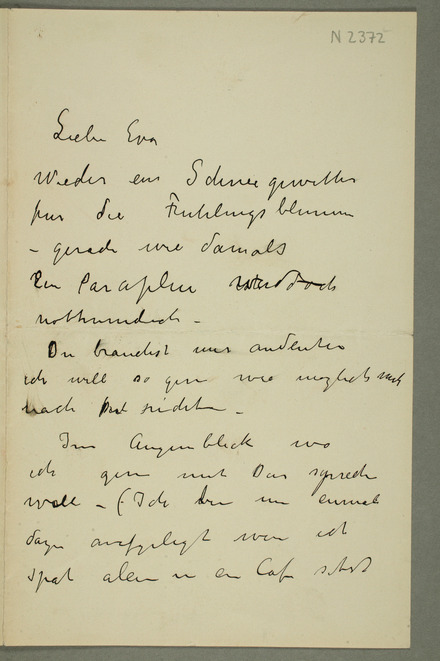 N 2372
Liebe Eva
Wieder ein Schneegewitter
für die Frühlingsblumen
– gerade wie damals
Ein Paraplui doch
–
Du brauchst nur andeuten
ich will so gern wie möglich mich
nach richten –
Im Augenblick wo
ich gern mit Dir sprechen
will – (Ich bin nun einmal
dazu aufgelegt wenn ich
spät allein in ein Café